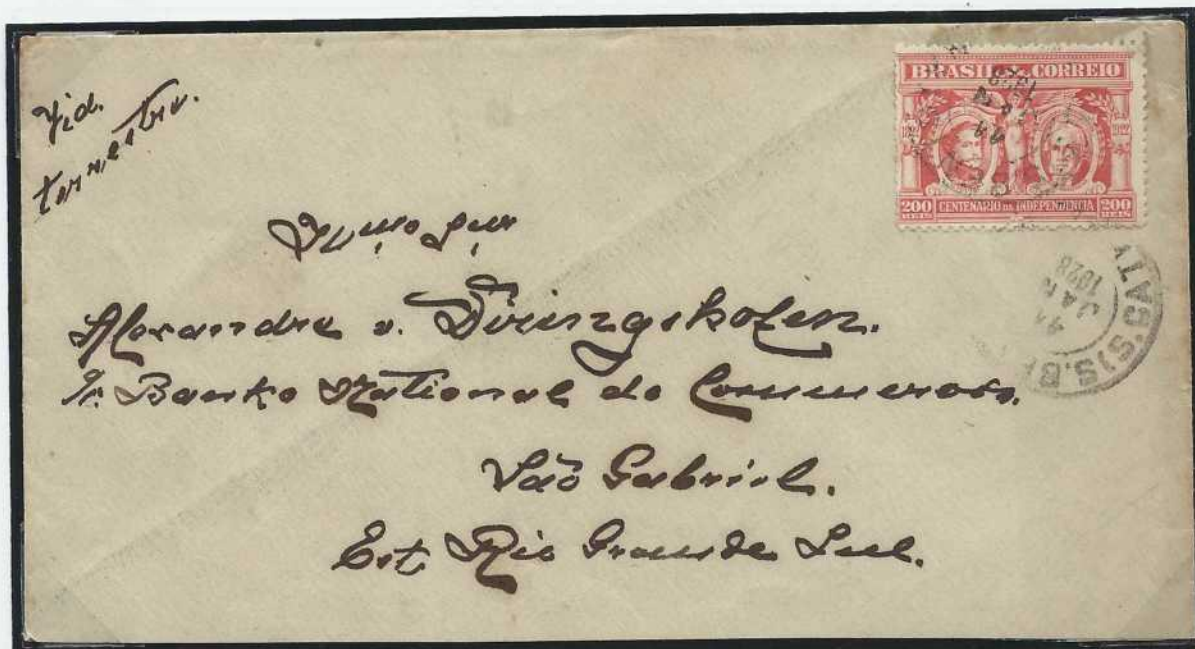 Via.
terrestre.
BRASIL CORREIO
1822 1922
200 CENTENARIO DA INDEPENDENCIA 200
REIS REIS
11
JAN
1928
11
JAN
1928
S.)S.B
Illmo Snr
Alexandre v. Düringshofen.
Banko National do Commercio.
São Gabriel.
Est Rio Grande Sul.